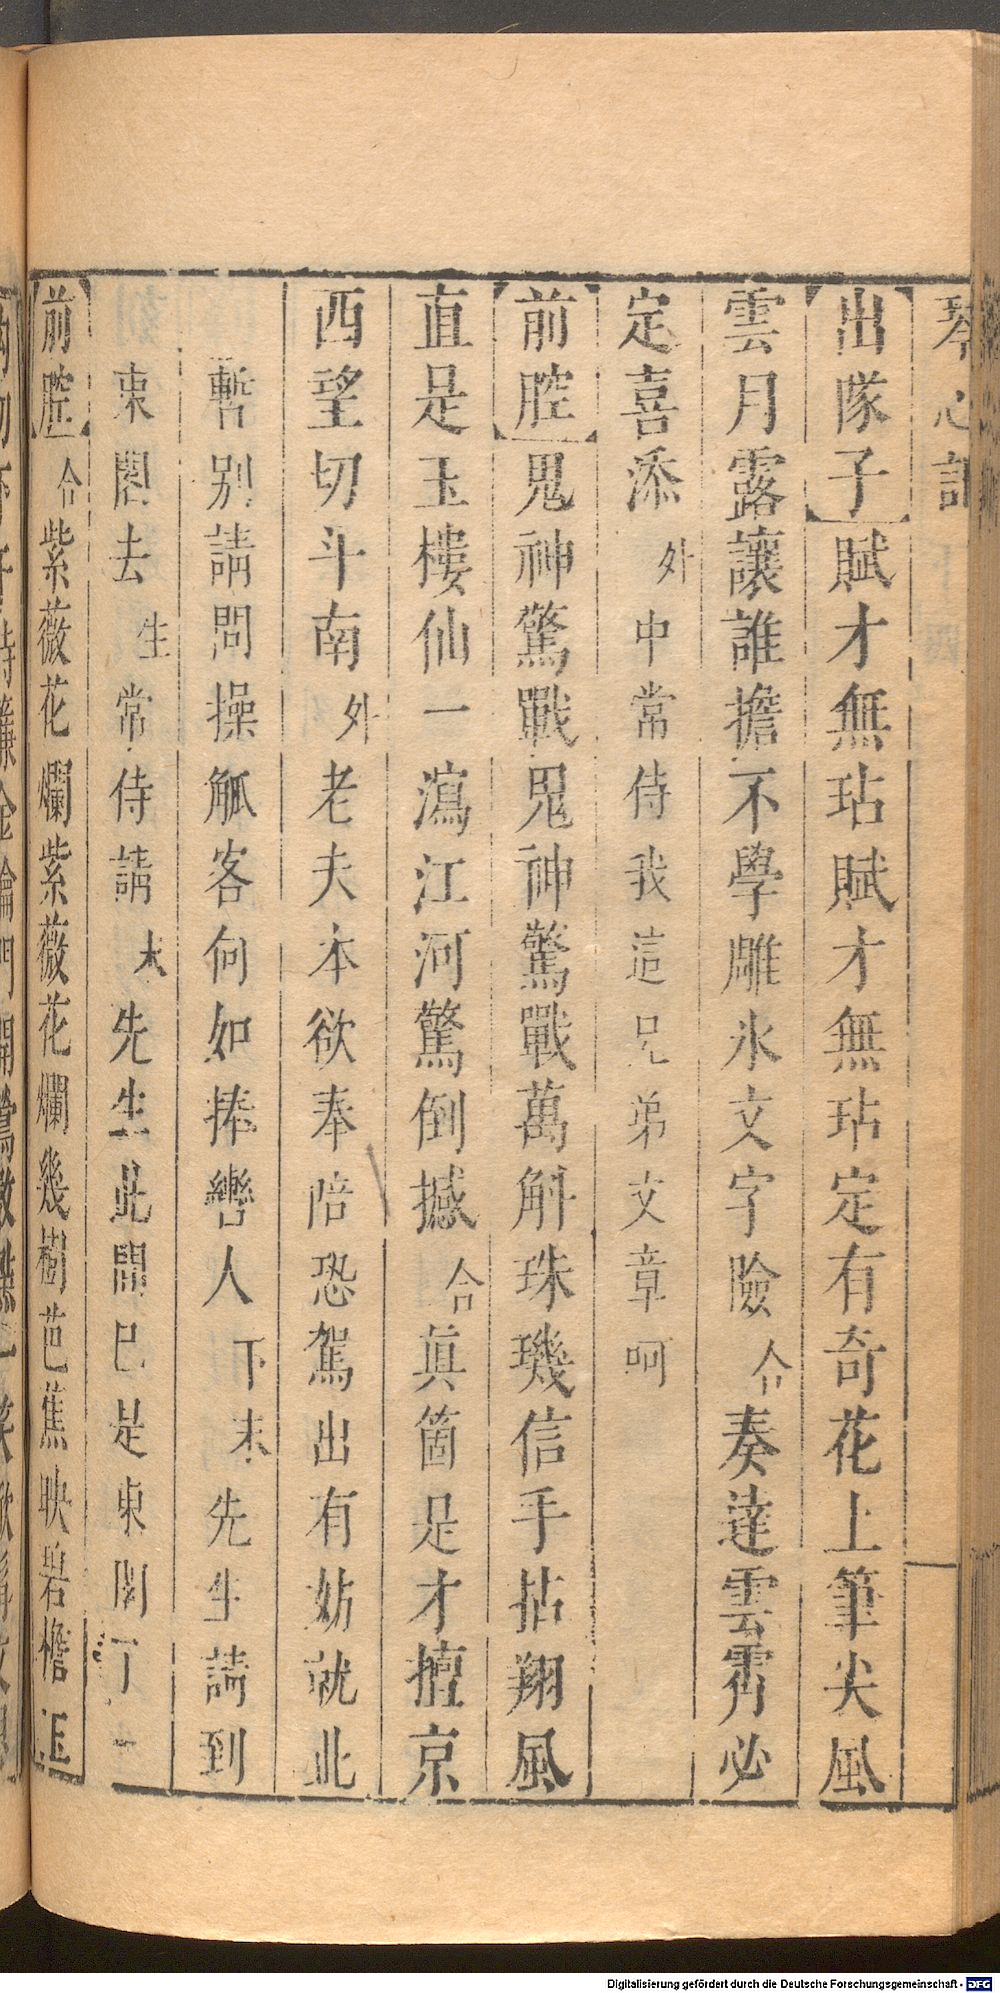 琴心記
出隊子賦才無玷賦才無玷定有奇花上筆尖風
雲月露讓誰擔不學雕氷文字險合奏達雲霄必
定喜添外中常侍我這兄弟文章呵
前腔鬼神驚戰鬼神驚戰萬斛珠璣信手拈翔風
直是玉樓仙一瀉江河驚倒撼合眞箇是才擅京
西望切斗南外老夫本欲奉陪恐駕出有妨就此
暫别請問操觚客何如捧轡人下末先生請到
東閣去生常侍請末先生此間已是東閣了
前腔合紫薇花爛紫薇花爛幾樹芭蕉映碧檐
Digitalisierung gefördert durch die Deutsche Forschungsgemeinschaft - DFG